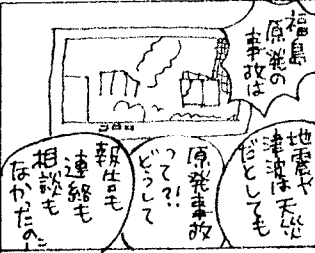 福島
原発の
事故は
地震や
津波は天災
だとしても
原発事故
って?!
どうして
報告も
連絡も
相談も
なかったの!